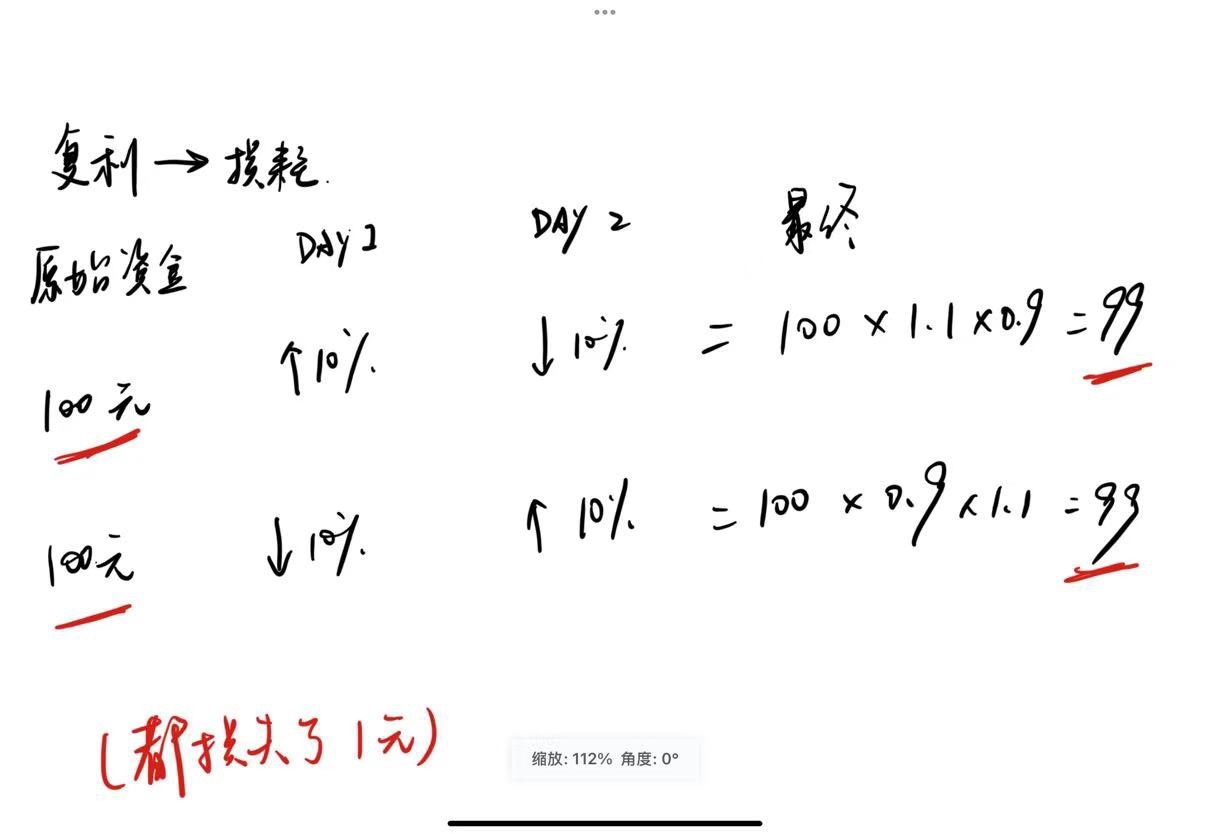 复利→损耗.
原始资金 DAY 1 DAY 2 最终
100元 ↑10% ↓10% = 100×1.1×0.9=99
100元 ↓10% ↑10% =100×0.9×1.1=99
(都损失了1元)
缩放: 112% 角度: 0°